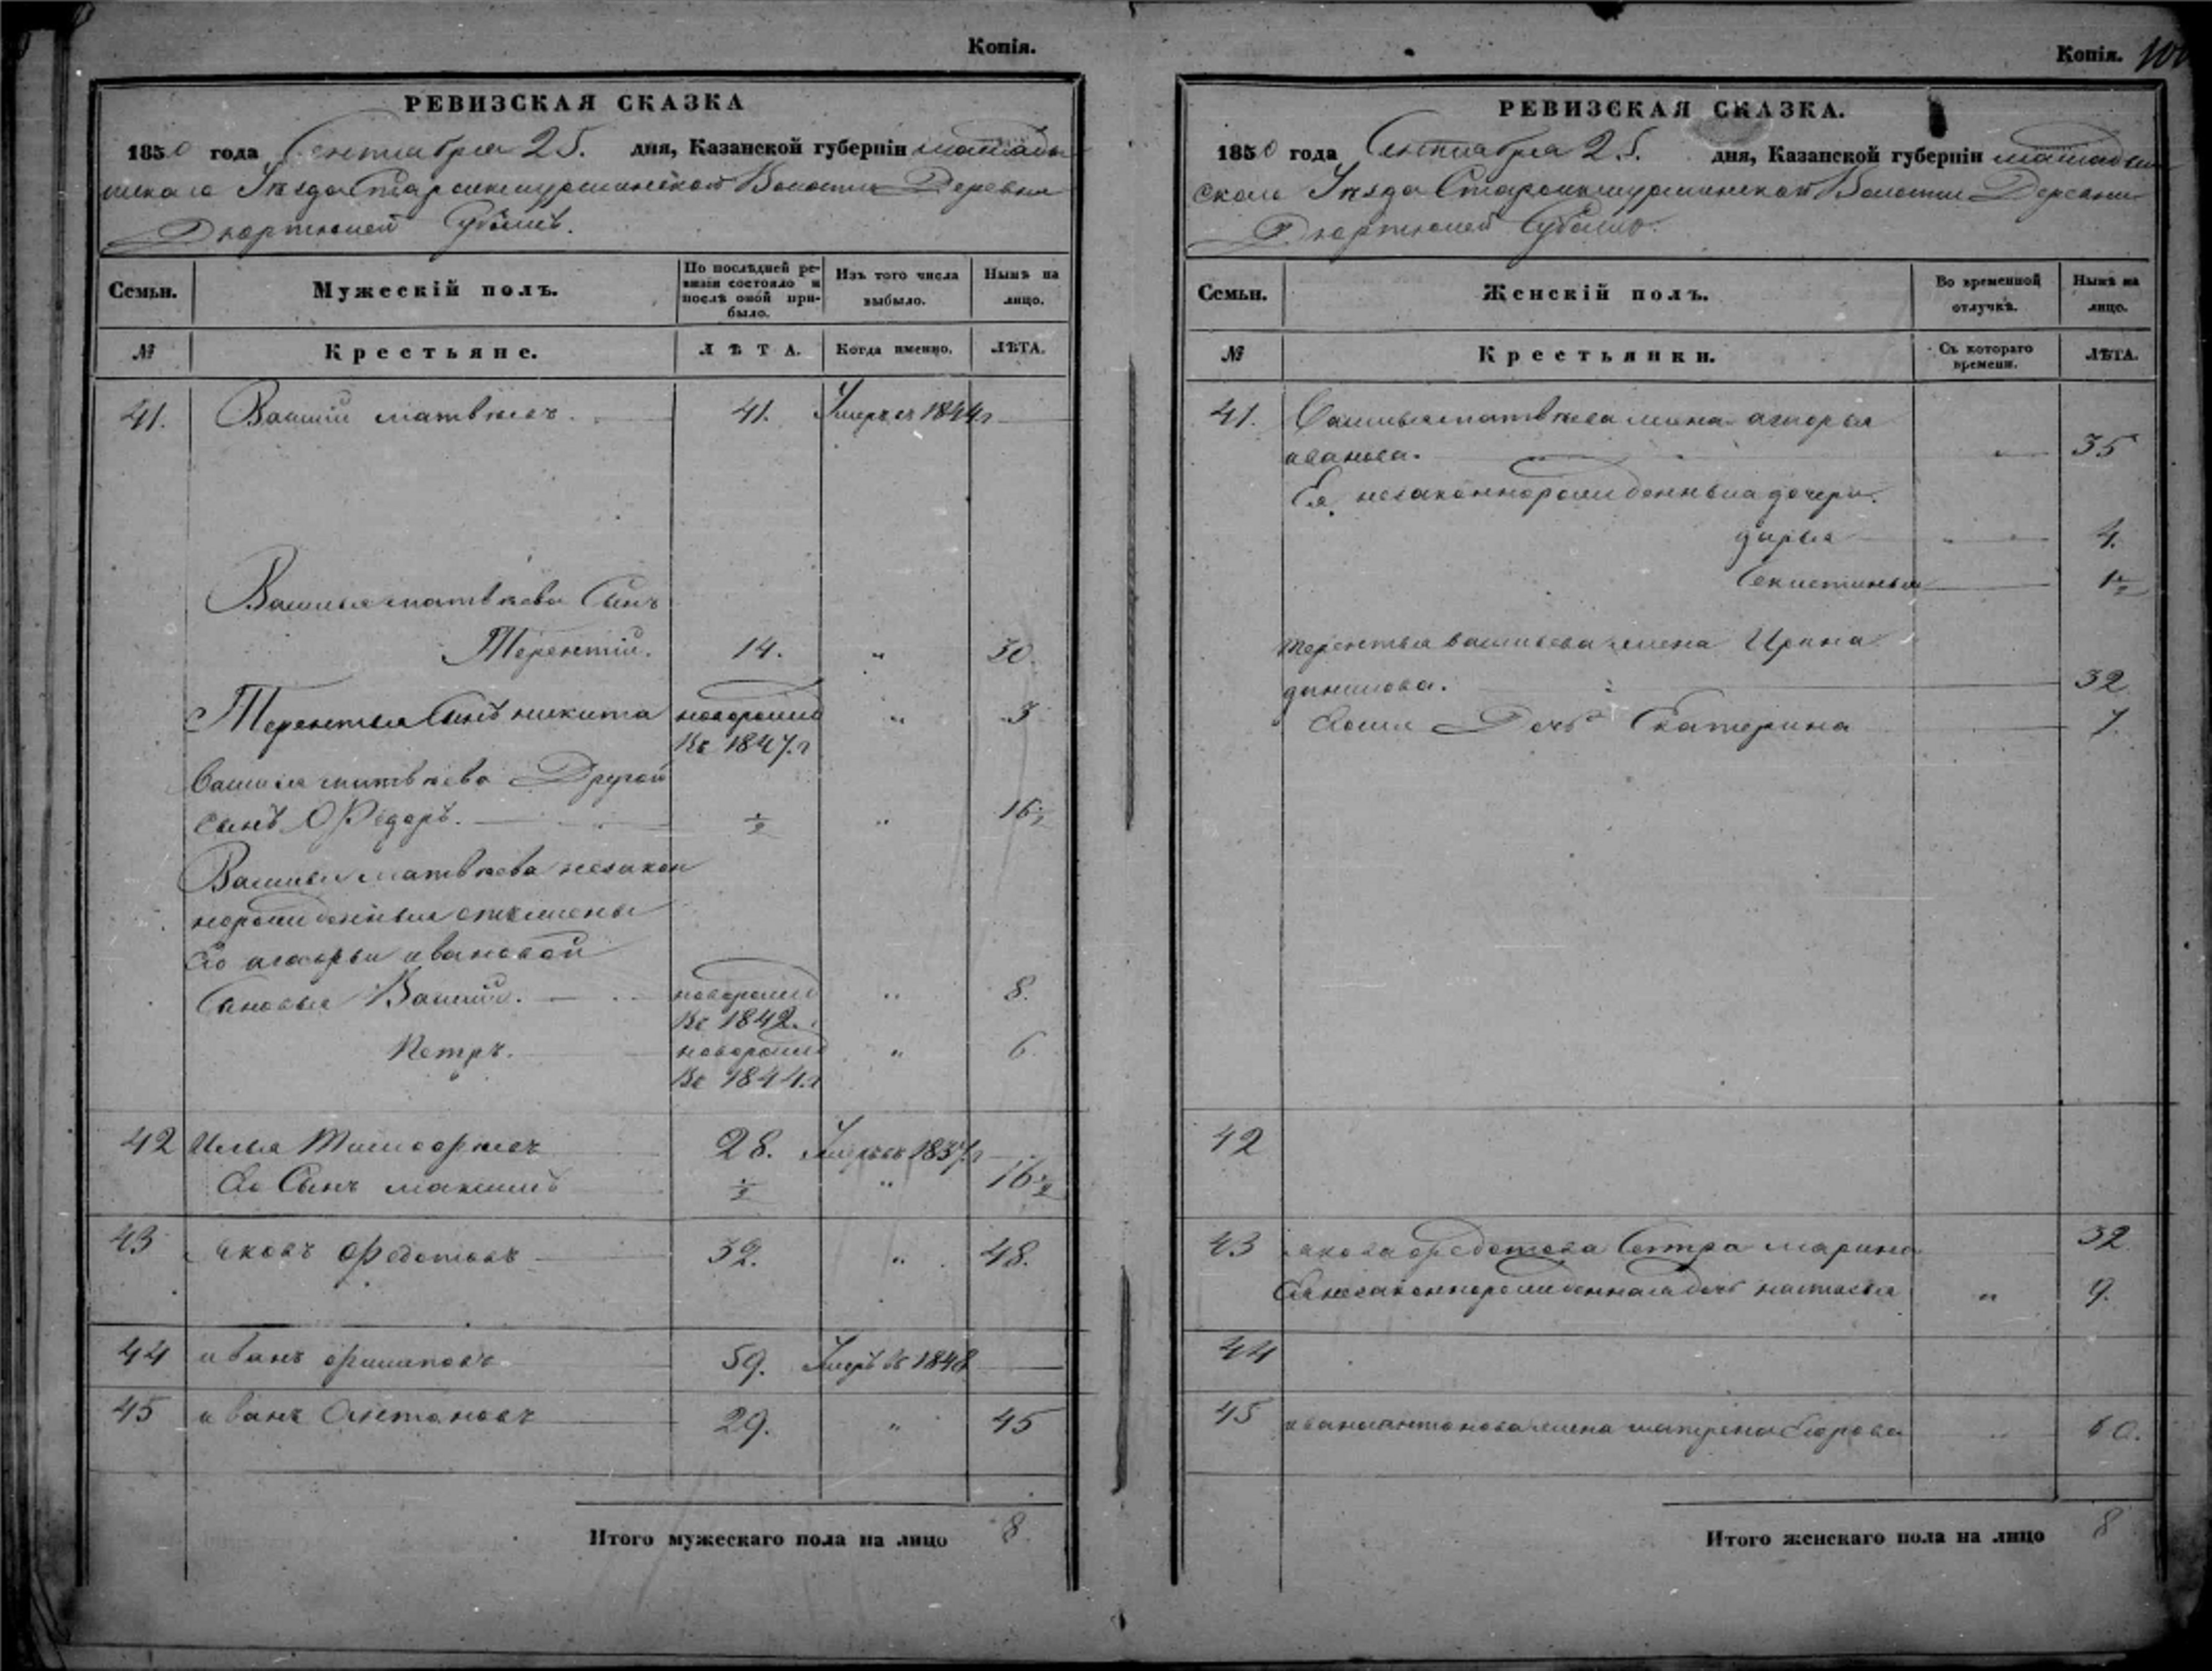 Копія.
РЕВИЗСКАЯ СКАЗКА
1850 года Сентября 25. дня, Казанской губерніи мамады
шскаго Уѣзда Волости Деревни
Дюртюлей
Семьи.
Мужескій полъ.
По послѣдней ре-
визіи состояло и
послѣ оной при-
было.
Изъ того числа
выбыло.
Нынѣ на
лицо.
№
Крестьяне.
ЛѢТА.
Когда именно.
ЛѢТА.
41. Василій матвѣевъ. 41. Умеръ въ 1844 г
Василья матвѣева Сынъ
Терентій. 14. " 30.
Терентья Сынъ никита новорожд " 3
въ 1847. г
Василья матвѣева Другой
сынъ Ѳедоръ. ½ " 16½
Василья матвѣева незакон
норожденныя отъ жены
его ивановой
Сыновья Василій. новорожд " 8.
въ 1842.
Петръ. новорожд " 6.
въ 1844. г
42 Илья Тимофѣевъ 28. Умеръ въ 1837. г
Его Сынъ максимъ ½ " 16½
43 яковъ федотовъ 32. " 48.
44 иванъ филиповъ 59. Умеръ въ 1848
45 иванъ Антоновъ 29. " 45
Итого мужескаго пола на лицо 8.
Копія.
РЕВИЗСКАЯ СКАЗКА.
1850 года Сентября 25. дня, Казанской губерніи мамадыш
скаго Уѣзда Волости Деревни
Дюртюлей
Семьи.
Женскій полъ.
Во временной
отлучкѣ.
Нынѣ на
лицо.
№
Крестьянки.
Съ котораго
времени.
ЛѢТА.
41. Василья матвѣева жена
иванова. " 35
Ея незаконнорожденныя дочери.
дарья " " 4.
1½
терентья васильева жена Ирина
данилова. 32
Дочь Екатерина 7.
42
43 якова федотова Сестра марина 32
Ея незаконнорожденная дочь настасья " 9.
44
45 ивана антонова жена матрена Егорова "
Итого женскаго пола на лицо 8